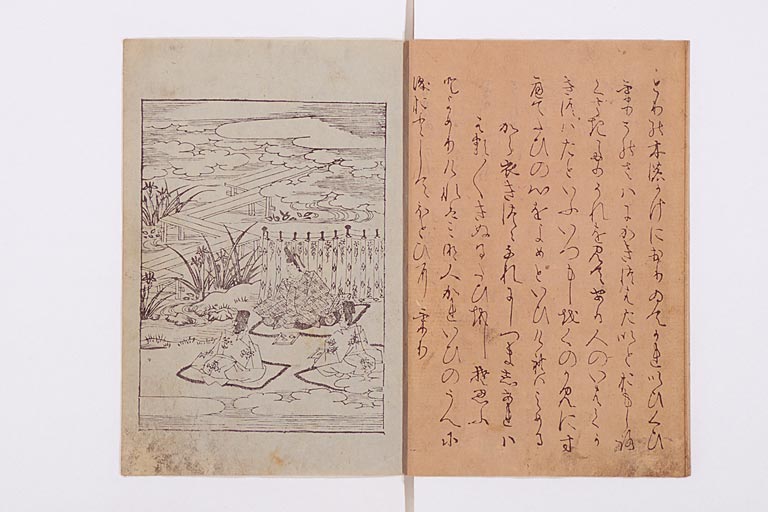 とりの木のかけにおりゐてかれいひくひ
けりそのさはにかきつはたいとおもしろ
くさきたりそれを見てある人のいはくか
きつはたといふいつもしをくのかみにす
へてたひの心をよめといひけれはよめる
から衣きつゝなれにしつましあれは
はる〱きぬるたひをしそ思ふ
とよめりけれはみな人かれいひのうへに
涙おとしてほとひにけり